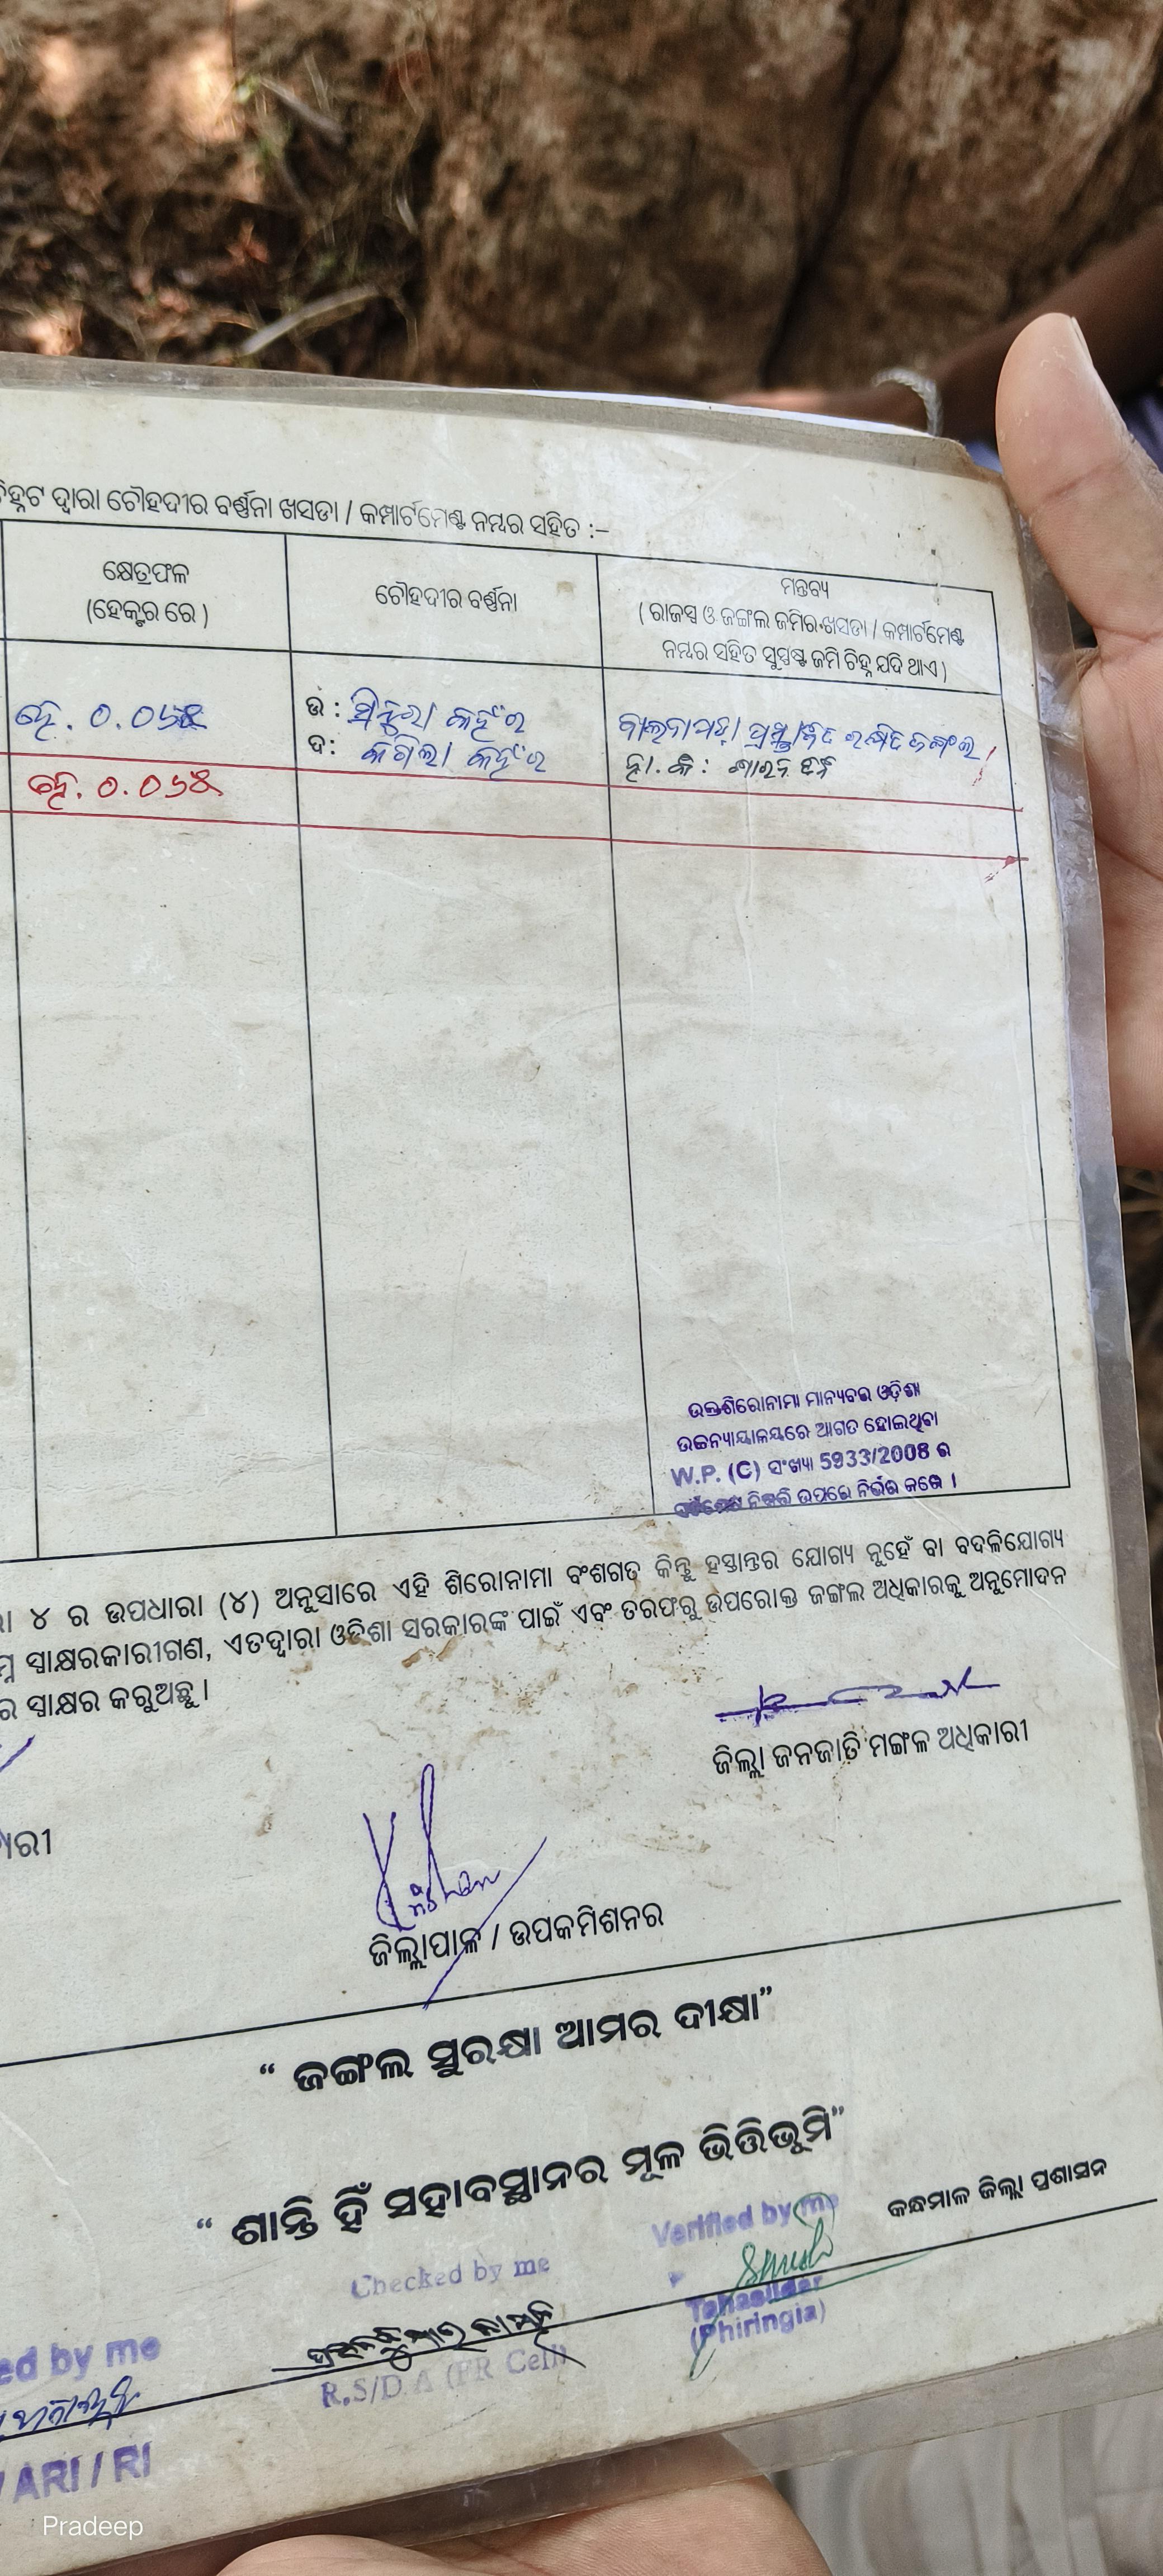 ଚିହ୍ନଟ ଦ୍ୱାରା ଚୌହଦୀର ବର୍ଣ୍ଣନା ଖସଡା / କମ୍ପାର୍ଟମେଣ୍ଟ ନମ୍ବର ସହିତ :–
କ୍ଷେତ୍ରଫଳ
(ହେକ୍ଟର ରେ )
ଚୌହଦୀର ବର୍ଣ୍ଣନା
ମନ୍ତବ୍ୟ
( ରାଜସ୍ୱ ଓ ଜଙ୍ଗଲ ଜମିର ଖସଡା / କମ୍ପାର୍ଟମେଣ୍ଟ
ନମ୍ବର ସହିତ ସୁସ୍ପଷ୍ଟ ଜମି ଚିହ୍ନ ଯଦି ଥାଏ )
ହେ. ୦.୦୬୫
ଉ : କହଁର
ଦ: କହଁର
ହେ. ୦.୦୬୫
ଉକ୍ତଶିରୋନାମା ମାନ୍ୟବର ଓଡ଼ିଶା
ଉଚ୍ଚନ୍ୟାୟାଳୟରେ ଆଗତ ହୋଇଥିବା
W.P. (C) ସଂଖ୍ୟା 5933/2008 ର
ନିଷ୍ପତ୍ତି ଉପରେ ନିର୍ଭର କରେ ।
୪ ର ଉପଧାରା (୪) ଅନୁସାରେ ଏହି ଶିରୋନାମା ବଂଶଗତ କିନ୍ତୁ ହସ୍ତାନ୍ତର ଯୋଗ୍ୟ ନୁହେଁ ବା ବଦଳିଯୋଗ୍ୟ
ସ୍ୱାକ୍ଷରକାରୀଗଣ, ଏତଦ୍ୱାରା ଓଡିଶା ସରକାରଙ୍କ ପାଇଁ ଏବଂ ତରଫରୁ ଉପରୋକ୍ତ ଜଙ୍ଗଲ ଅଧିକାରକୁ ଅନୁମୋଦନ
ର ସ୍ୱାକ୍ଷର କରୁଅଛୁ ।
ଜିଲ୍ଲା ଜନଜାତି ମଙ୍ଗଳ ଅଧିକାରୀ
ଜିଲ୍ଲାପାଳ / ଉପକମିଶନର
“ ଜଙ୍ଗଲ ସୁରକ୍ଷା ଆମର ଦୀକ୍ଷା”
“ ଶାନ୍ତି ହିଁ ସହାବସ୍ଥାନର ମୂଳ ଭିତ୍ତିଭୂମି”
କନ୍ଧମାଳ ଜିଲ୍ଲା ପ୍ରଶାସନ
Verified by me
Tahasildar
(Phiringia)
Checked by me
R.S/D.A (FR Cell)
ed by me
/ ARI / RI
Pradeep